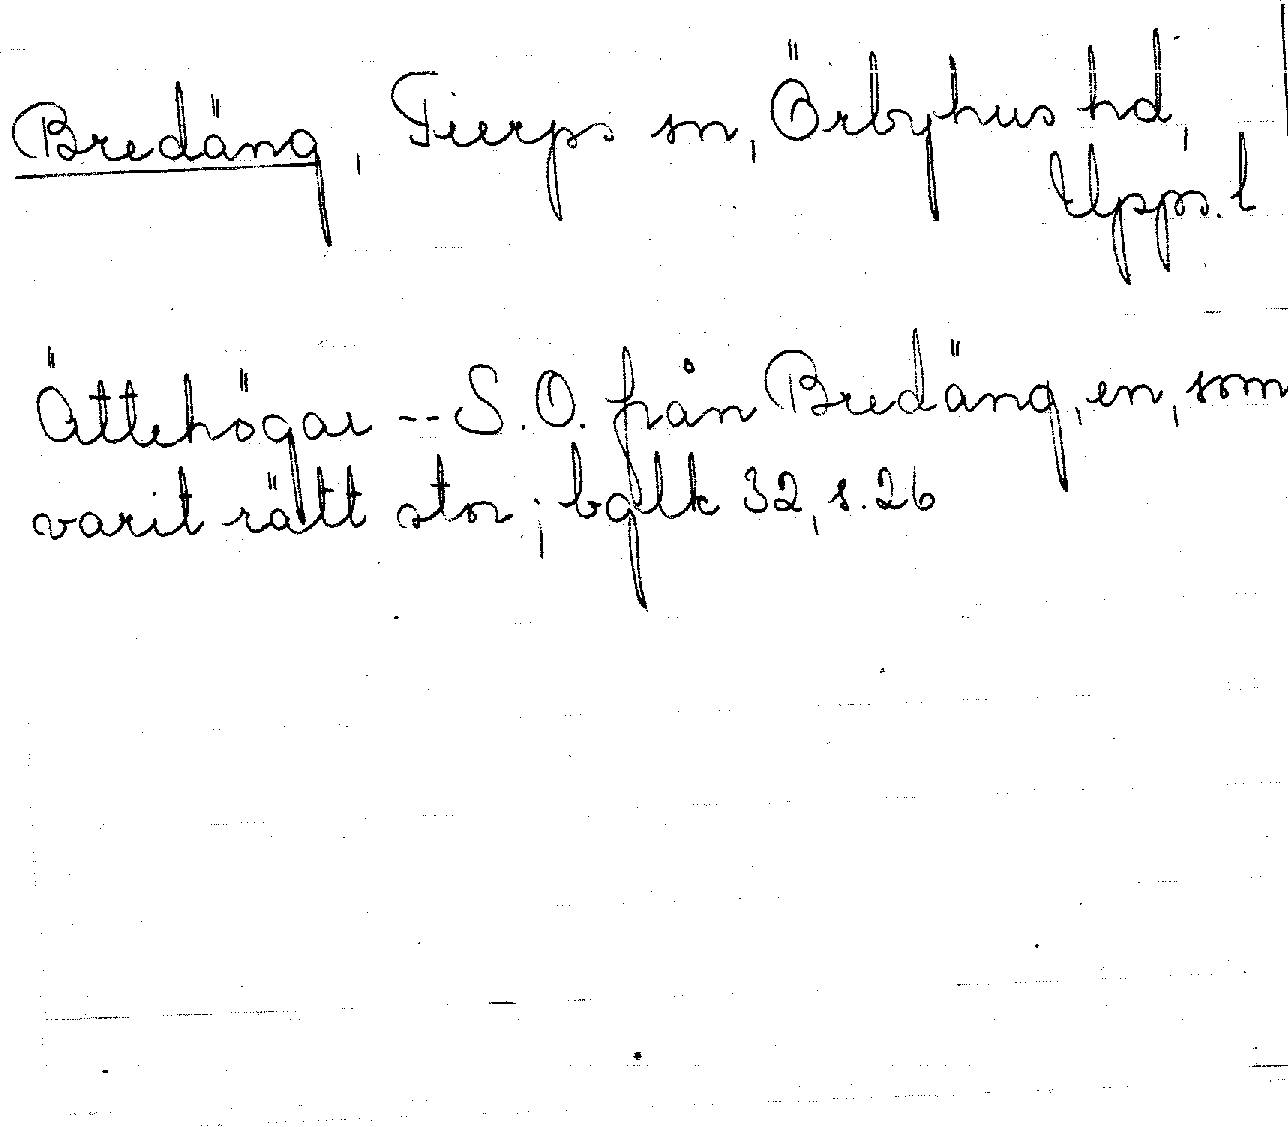 Bredäng, Tierps sn, Örbyhus hd,
Upps. l
Ättehögar -- S.O. från Bredäng, en, som
varit rätt stor; bglk 32, s. 26